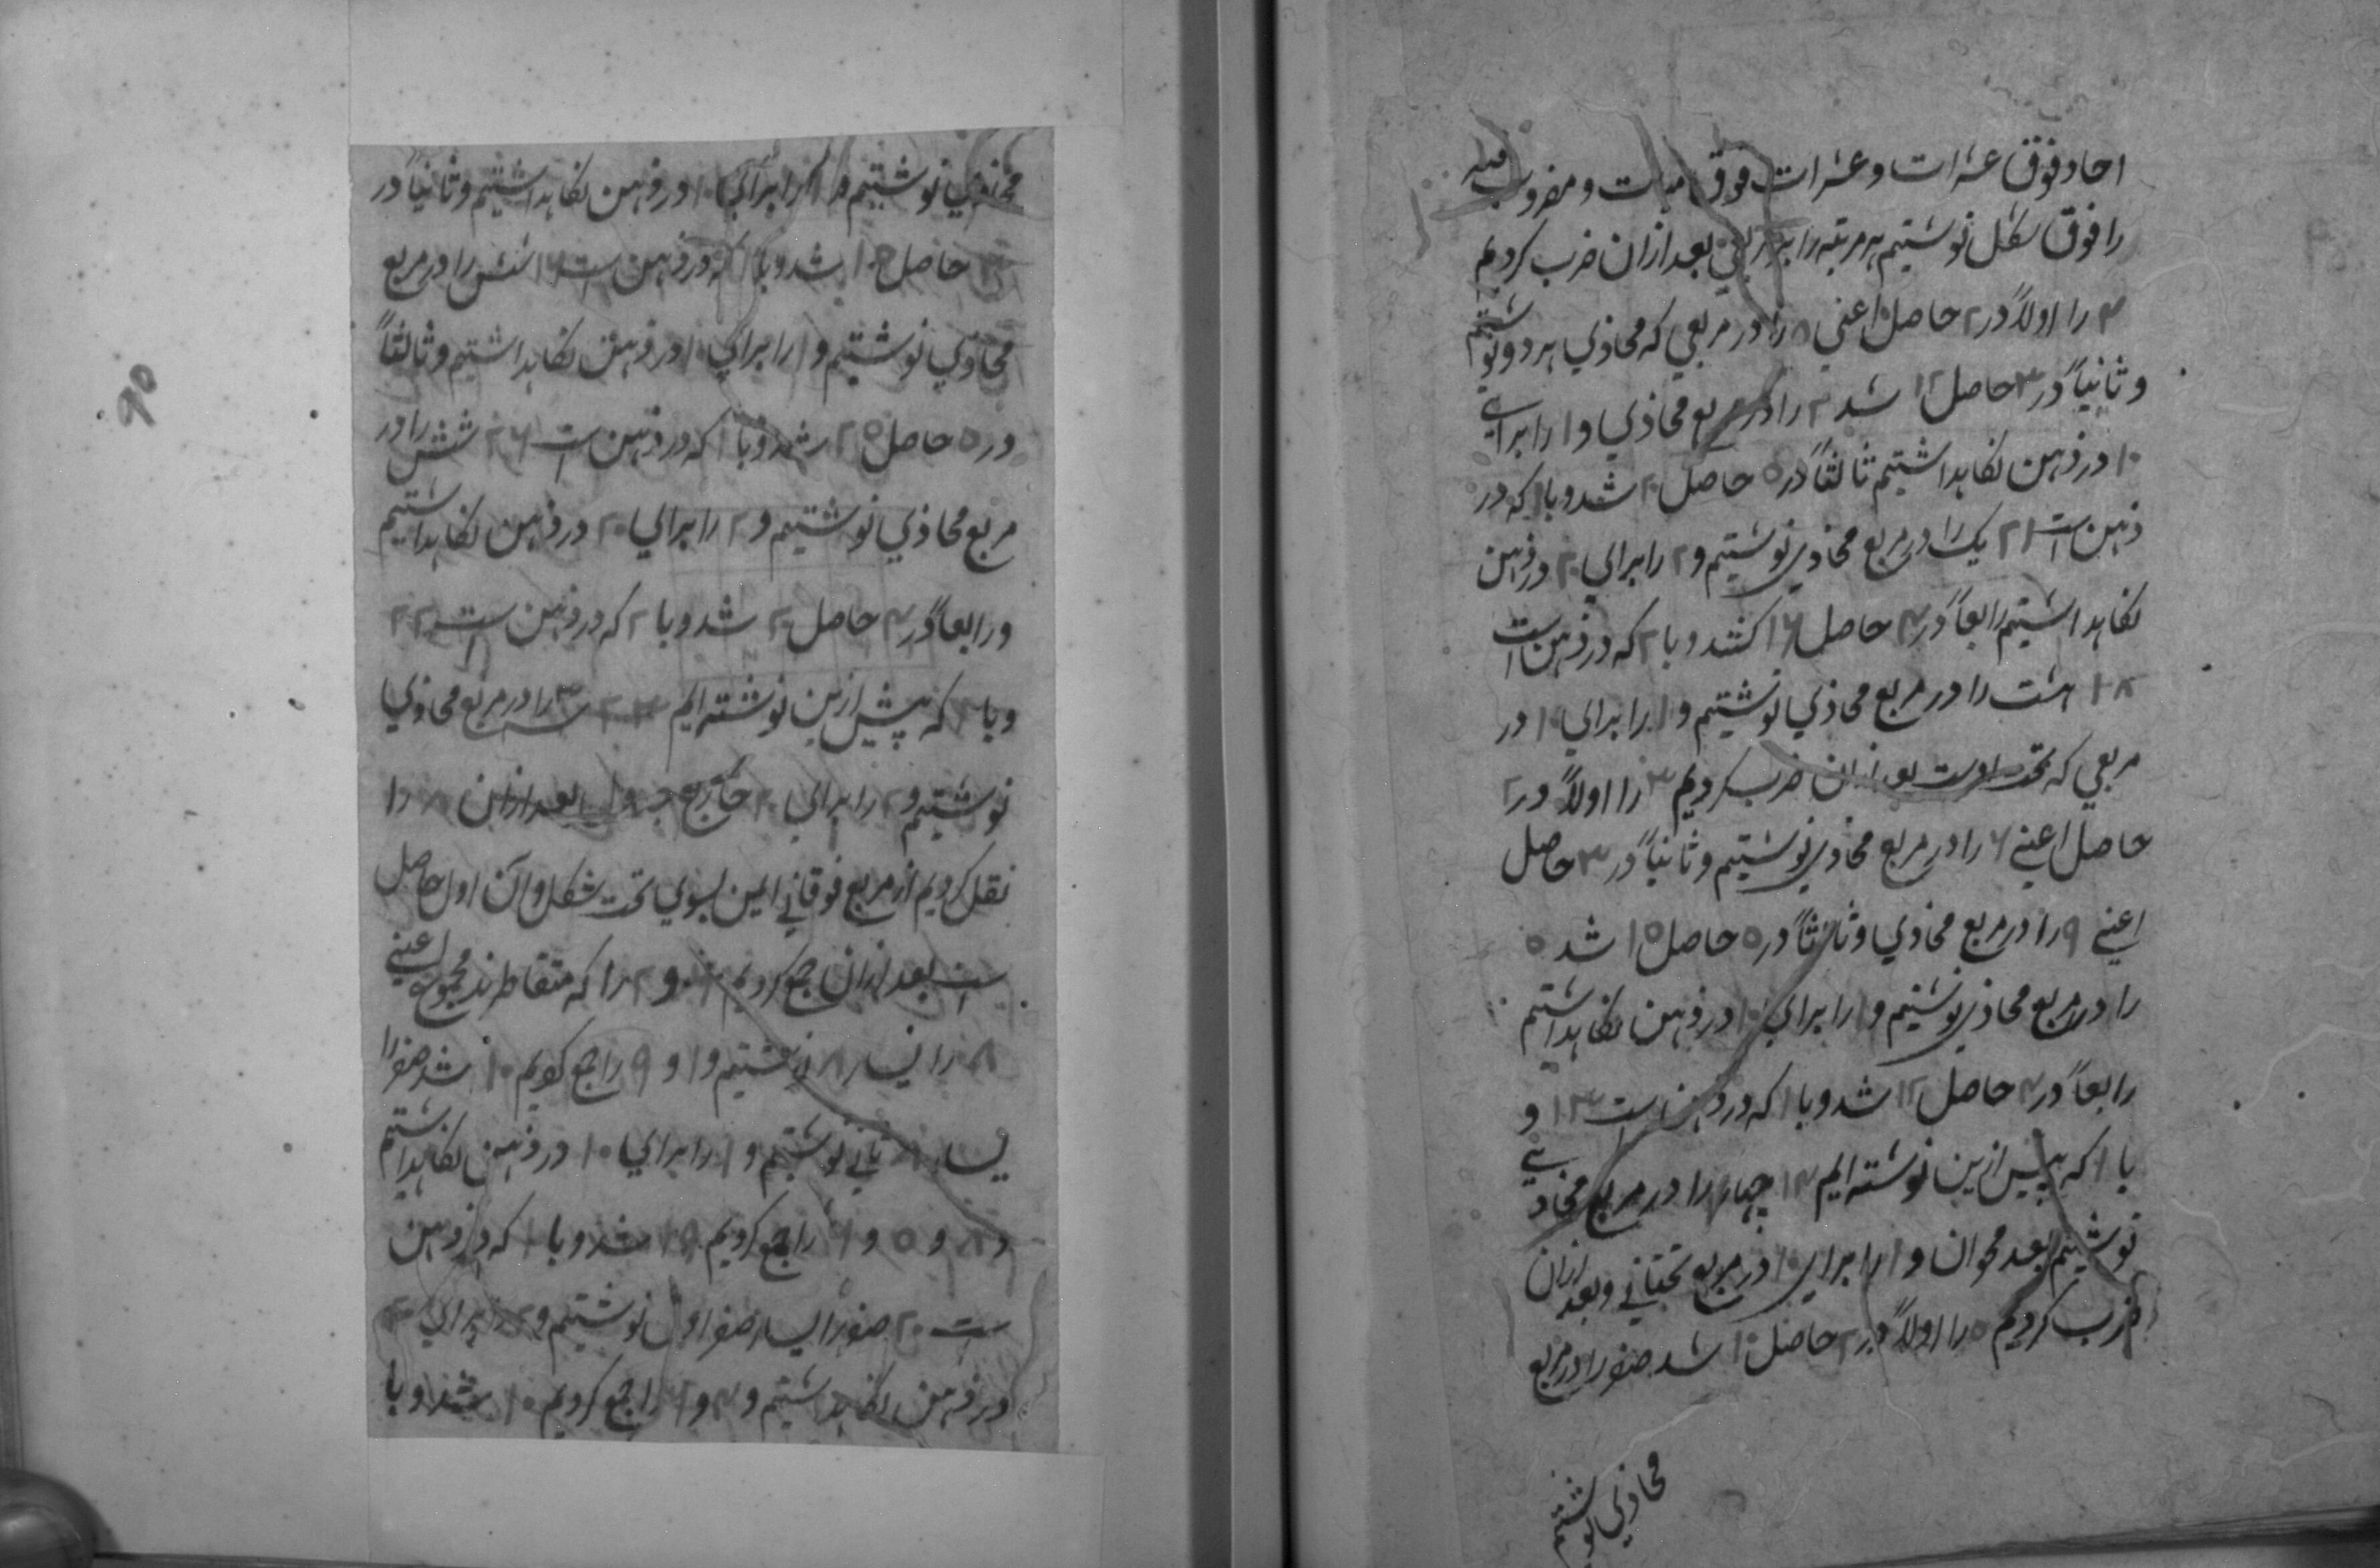 احاد فوق عشرات و عشرات فوق مات و مضروب فیه
را فوق شکل نوشتیم هر مرتبه را برابر بعد ازان ضرب کردیم
۴ را اولاً در ۲ حاصل اعنی ۸ را در مربعی که محاذی هر دو نوشتیم
و ثانیاً در ۳ حاصل ۱۲ شد ۲ را در مربع محاذی و ۱ را برای
۱۰ در ذهن نکاهداشتیم ثالثاً در ۵ حاصل ۲۰ شد و با ۱ که در
ذهن است ۲۱ یک را در مربع محاذی نوشتیم و ۲ را برای ۲۰ در ذهن
نکاهداشتیم رابعاً در ۴ حاصل ۱۶ کشد و با ۲ که در ذهن است
۱۸ هشت را در مربع محاذی نوشتیم و ۱ را برای ۱۰ در
مربعی که تحت اوست بعد ازان ضرب کردیم ۳ را اولاً در ۲
حاصل اعنے ۶ را در مربع محاذی نوشتیم و ثانیاً در ۳ حاصل
اعنے ۹ را در مربع محاذی و ثالثاً در ۵ حاصل ۱۵ شد ۵
را در مربع محاذی نوشتیم و ۱ را برای ۱۰ در ذهن نکاهداشتیم
رابعاً در ۴ حاصل ۱۲ شد و با ۱ که در ذهن است ۱۳ و
با ۱ که پیش ازین نوشته ایم ۱۴ چهار را در مربع محاذی
نوشتیم بعد محو ان و ۱ را برای ۱۰ در مربع تحتانی و بعد ازان
ضرب کردیم ۵ را اولاً در ۲ حاصل ۱۰ شد صفر را در مربع
محاذی نوشتیم
محاذی نوشتیم و ۱ را برای ۱۰ در ذهن نکاهداشتیم و ثانیاً در
۳ حاصل ۱۵ شد و با ۱ که در ذهن است ۱۶ شش را در مربع
محاذی نوشتیم و ۱ را برای ۱۰ در ذهن نکاهداشتیم و ثالثاً
در ۵ حاصل ۲۵ شد و با ۱ که در ذهن است ۲۶ شش را در
مربع محاذی نوشتیم و ۲ را برای ۲۰ در ذهن نکاهداشتیم
و رابعاً در ۴ حاصل ۲۰ شد و با ۲ که در ذهن است ۲۲
و با ۱ که پیش ازین نوشته ایم ۲۳ سه ۳ را در مربع محاذی
نوشتیم و ۲ را برای ۲۰ خارج جدول بعد ازان ۸ را
نقل کردیم از مربع فوقانی ایمن بسوی تحت شکل و آن اول حاصل
است بعد ازان جمع کردیم ۶ و ۲ را که متقاطرند مجموع اعنی
۸ را یسار ۸ نوشتیم و ۱ و ۹ را جمع کردیم ۱۰ شد صفر را
یسار ۸ ثانی نوشتیم و ۱ را برای ۱۰ در ذهن نکاهداشتیم
و ۸ و ۵ و ۶ را جمع کردیم ۱۹ شد و با ۱ که در ذهن
است ۲۰ صفر را یسار صفر اول نوشتیم و ۲ را برای ۲۰
در ذهن نکاهداشتیم و ۴ و ۶ را جمع کردیم ۱۰ شد و با
۹۵